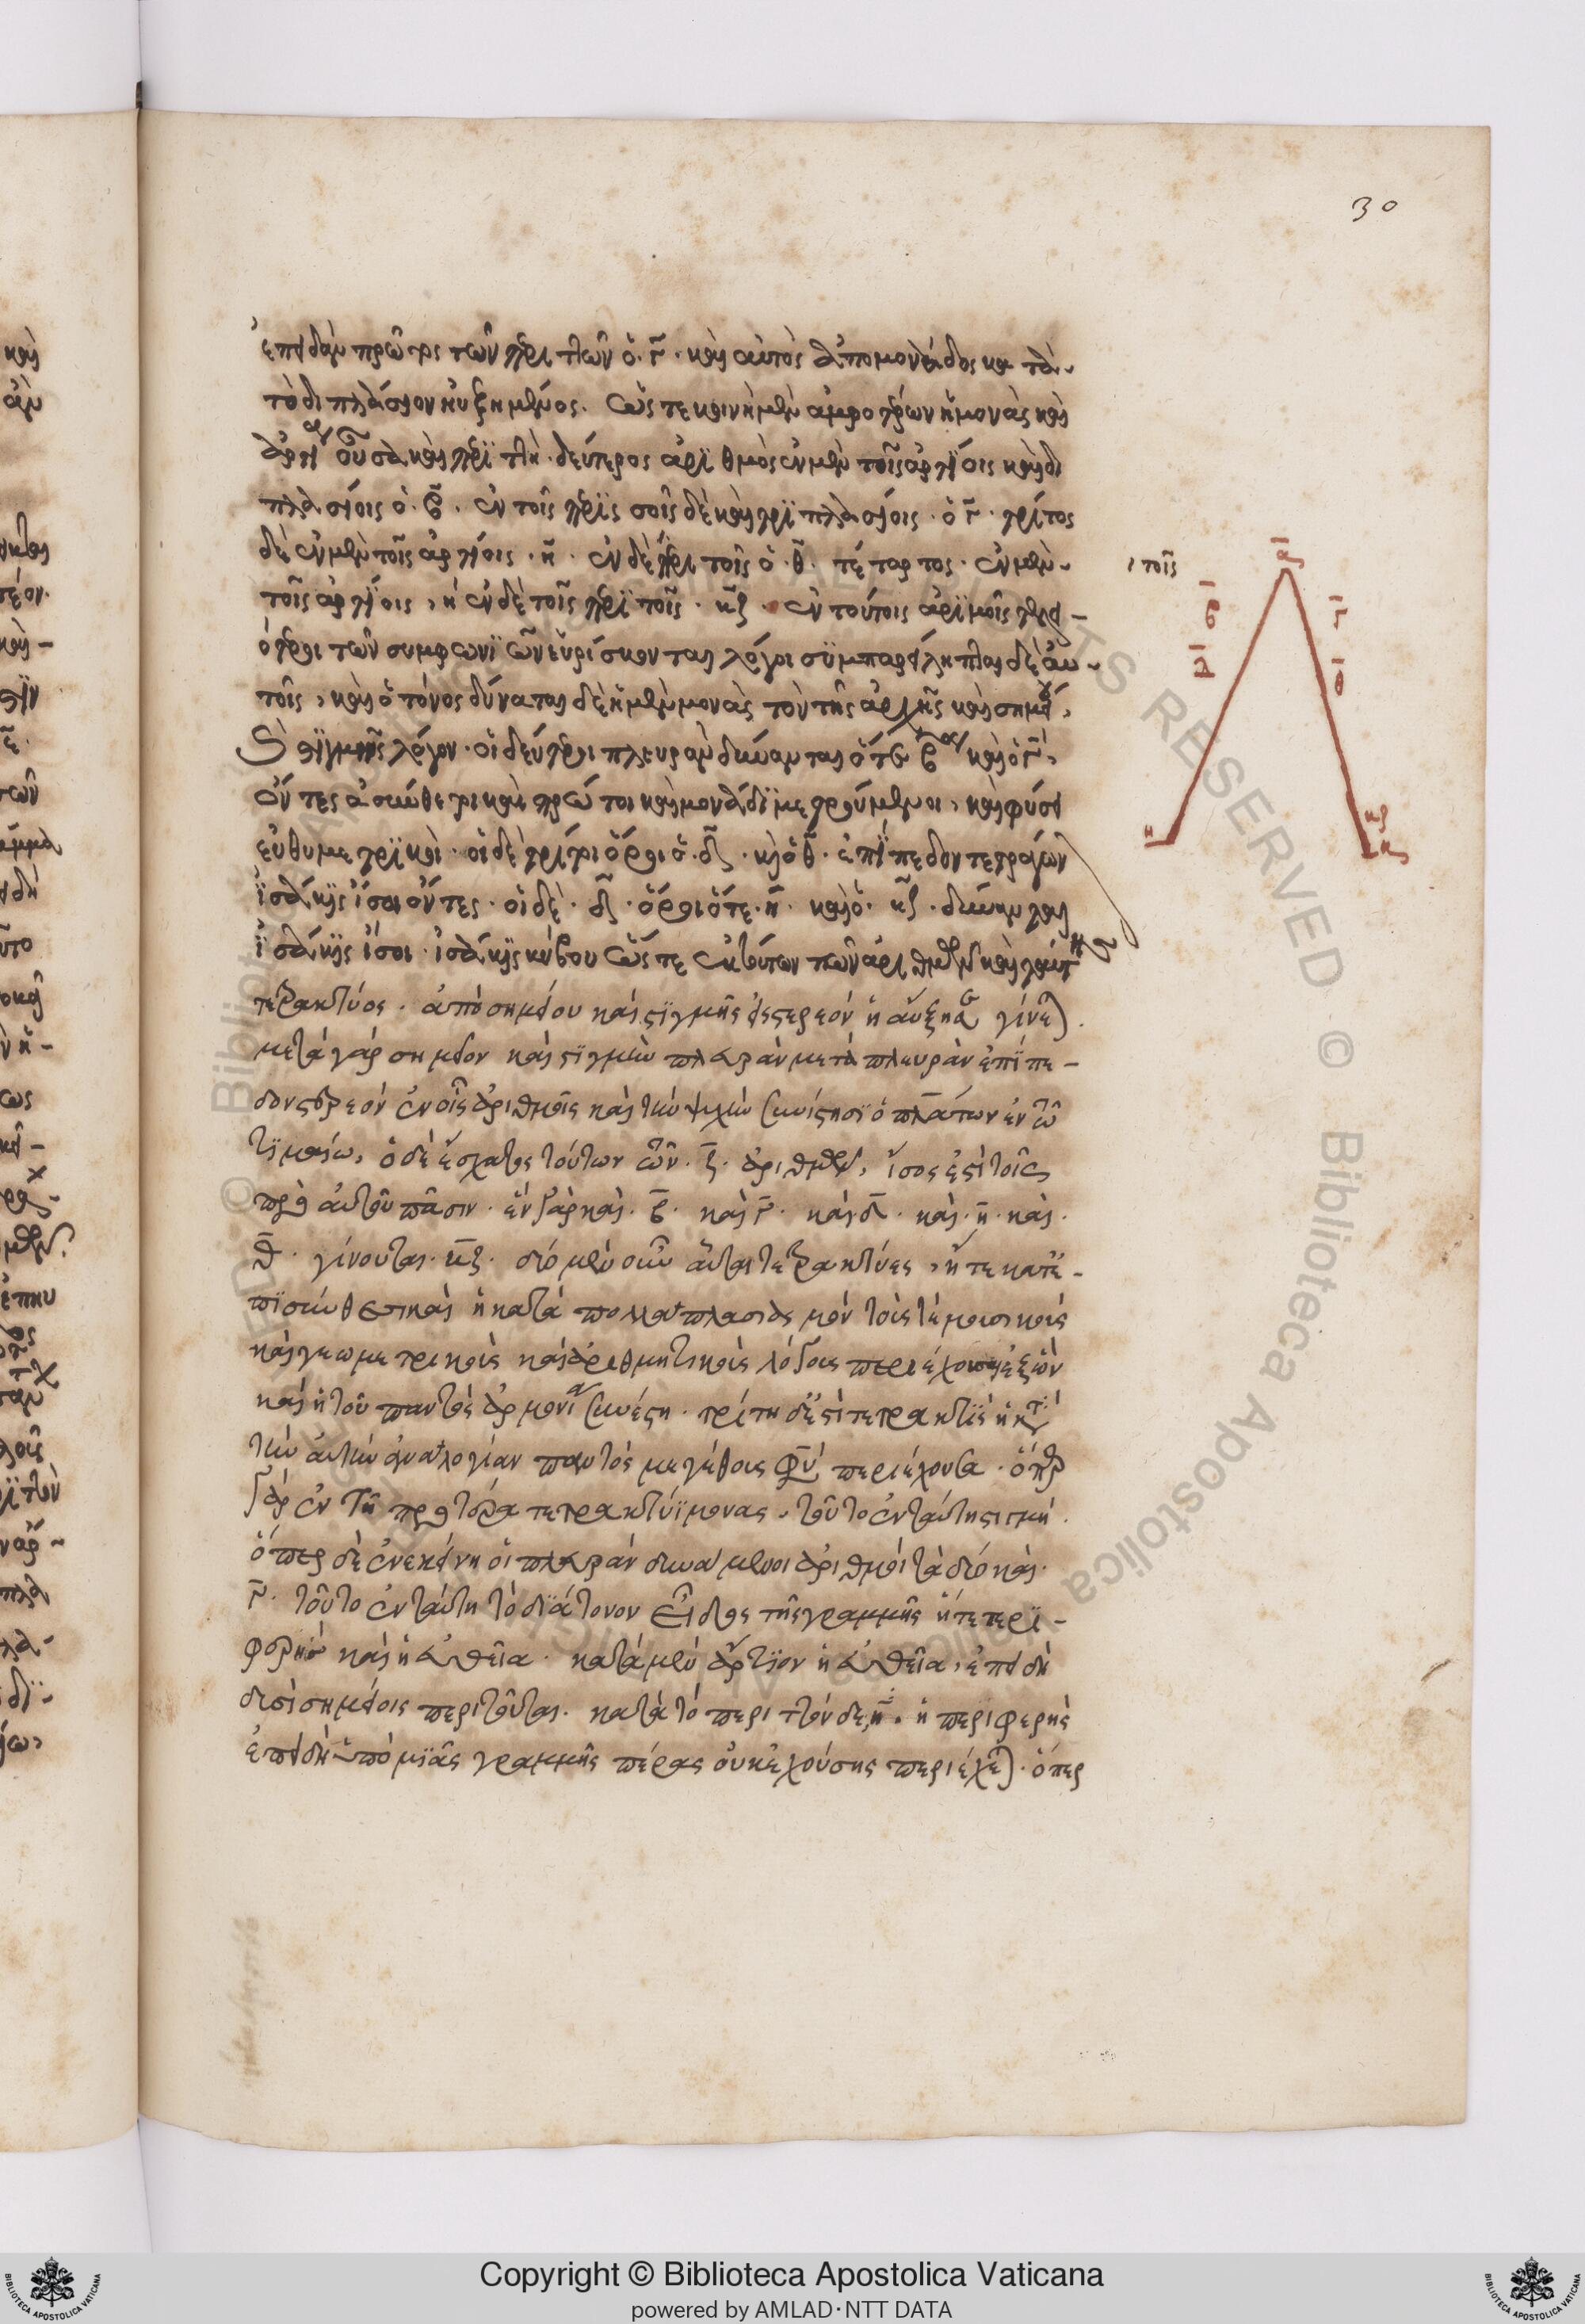 ἐπειδὰν πρῶτος τῶν περιττῶν ὁ · γ̄ · καὶ αὐτὸς ἀπομονάδος κατὰ
τὸ διπλάσιον ηὐξημένος. ὥς τε κοινὴ μὲν ἀμφοτέρων ἡ μονὰς καὶ
ἀρτία οὖσα καὶ περιϊττὴ · δεύτερος ἀριθμὸς ἐν μὲν τοῖς ἀρτίοις καὶ δι
πλασίοις ὁ · β̄ · ἐν τοῖς περισσοῖς δὲ καὶ τριπλασίοις · ὁ γ̄ · τρίτος
δὲ ἐν μὲν τοῖς ἀρτίοις · η̄ · ἐν δὲ περιτοῖς ὁ · θ̄ · τέταρτος · ἐν μὲν
τοῖς ἀρτίοις, η ἐν δὲ τοῖς περιτοῖς · κ̄ζ · ἐν τούτοις ἀριμοῖς τελει-
ότεροι τῶν συμφωνιῶν εὑρίσκονται λόγοι συμπαρείληπται δὲ αὐ-
τοῖς, καὶ ὁ τόνος δύναται δὲ ἡ μὲν μονὰς τὸν τῆς ἀρχῆς καὶ σημείου,
στιγμῆς λόγον · οἱ δεύτεροι πλευρὰν δύνανται ὅτε β̄ καὶ ὁ γ̄,
ὄντες ἀσύνθετοι καὶ πρῶτοι καὶ μονάδι μετρούμενοι, καὶ φύσει
εὐθυμετρικοὶ · οἱ δὲ τρίτοι ὅροι ὁ · δ̄ · κ ὁ θ̄ · ἐπίπεδον τετράγων
ἰσάκις ἴσοι ὄντες · οἱ δὲ · δ̄ · ὅροι ὅτε · η̄ · καὶ ὁ · κ̄ζ · δύνανται
ἰσάκις ἴσοι · ἰσάκις κύβου ὥς τε ἐκ τούτων τῶν ἀριθμῶν καὶ ταύτης
τετρακτύος · ἀπὸ σημείου καὶ στιγμῆς εἰς στερεόν ἡ αὔξησις γίνεται.
μετὰ γὰρ σημεῖον καὶ στιγμὴν πλευρὰν μετὰ πλευρὰν ἐπίπε-
δον στερεόν ἐν οἷς ἀριθμοῖς καὶ τὴν ψυχὴν συνίστησι ὁ πλάτων ἐν τῶ
τιμαίω, ὁ δὲ ἔσχατος τούτων τῶν · ζ̄ · ἀριθμῶν, ἴσος ἐστὶ τοῖς
πρὸ αὐτοῦ πᾶσιν · ἓν γὰρ καὶ · β̄ · καὶ γ̄ · καὶ · δ̄ · καὶ · η̄ · καὶ ·
θ̄ · γίνονται · κ̄ζ · δύο μὲν οὖν αὗται τετρακτύες, ἥ τε κατ' ἐ-
πισύνθεσιν καὶ ἡ κατὰ πολλαπλασιασμὸν τοὺς τε μουσικοὺς
καὶ γεωμετρικοὺς καὶ ἀριθμητικοὺς λόγους περιέχουσαι ἐξ ὧν
καὶ ἡ τοῦ παντὸς ἁρμονία συνέστη · τρίτη δ' ἐστὶ τετρακτὺς ἡ κατὰ
τὴν αὐτὴν ἀναλογίαν παντὸς μεγέθους φύσιν περιέχουσα · ὅπερ
γὰρ ἐν τῆ προτέρα τετρακτύϊ μονας, τοῦτο ἐν ταύτη στιγμή ·
ὅπερ δὲ ἐν ἐκείνη οἱ πλευρὰν δυνάμενοι ἀριθμοί τὰ δύο καὶ ·
γ̄ · τοῦτο ἐν ταύτη τὸ διάτονον εἶδος τῆς γραμμῆς ἥ τε περι-
φερὴς καὶ ἡ εὐθεῖα · κατὰ μὲν ἄρτιον ἡ εὐθεῖα, ἐπειδὴ
δυσὶ σημείοις περιτοῦται. κατὰ τὸ περιττὸν δε, η̄ · ἡ περιφερὴς
ἐπειδὴ ὑπὸ μιᾶς γραμμῆς πέρας οὐκ ἐχούσης περιέχεται · ὅπερ
30
, τοῖς
ᾱ
β̄
γ̄
δ̄
θ̄
η
κζ
Copyright © Biblioteca Apostolica Vaticana
powered by AMLAD·NTT DATA